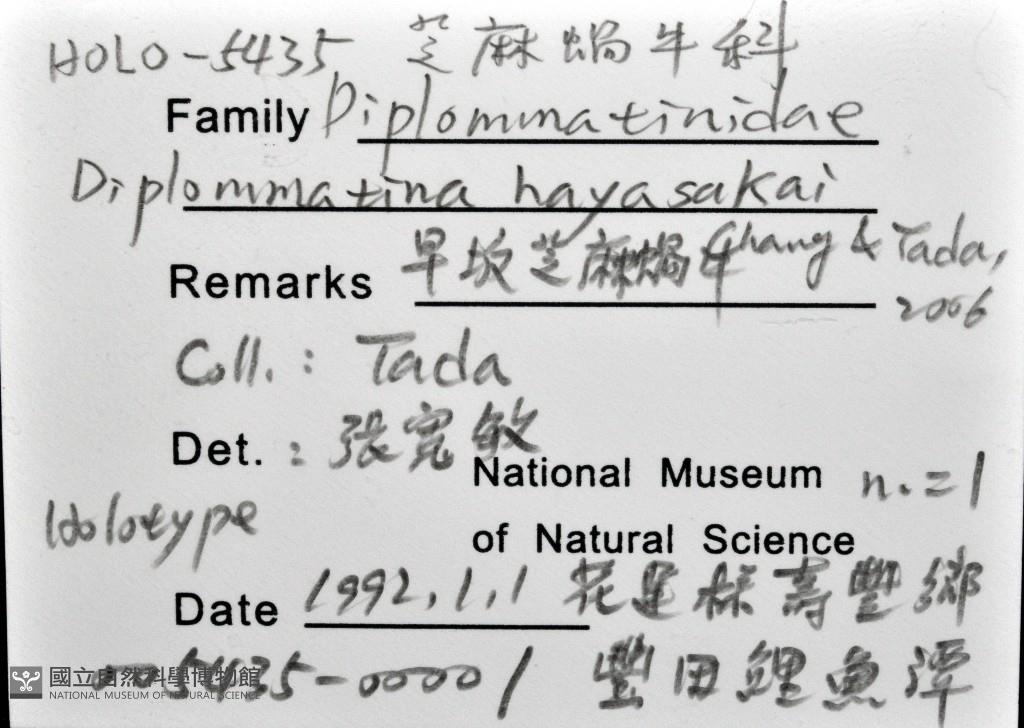 HOLO-5435 芝麻蝸牛科
Family Diplommatinidae
Diplommatina hayasakai
Remarks 早坂芝麻蝸牛 Chang & Tada,
2006
Coll.: Tada
Det.: 張寬敏
National Museum n.=1
Holotype
of Natural Science
Date 1992.1.1 花蓮縣壽豐鄉
5435-00001 豐田鯉魚潭
國立自然科學博物館
NATIONAL MUSEUM OF NATURAL SCIENCE